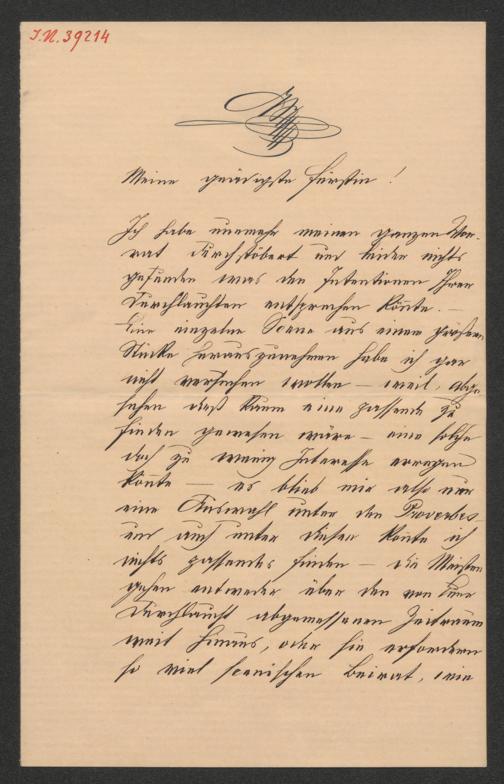 I.N. 39214
Meine gnädigste Fürstin!
Ich habe nunmehr meinen ganzen Vor-
rat durchstöbert und leider nichts
gefunden was den Intentionen Ihrer
Durchlauchten entsprechen könte. —
Eine einzelne Scene aus einem größern
Stücke herauszunehmen habe ich gar
nicht versuchen wollen — weil, abge-
sehen daß kaum eine passende zu
finden gewesen wäre — eine solche
doch zu wenig Interesse erregen
könte — es blieb mir also nur
eine Auswahl unter den Proverbes
und auch unter diesen konte ich
nichts passendes finden — die Meisten
gehen entweder über den von Euer
Durchlaucht abgemessenen Zeitraum
weit hinaus, oder sie erfordern
so viel scenischen Beirat, wie